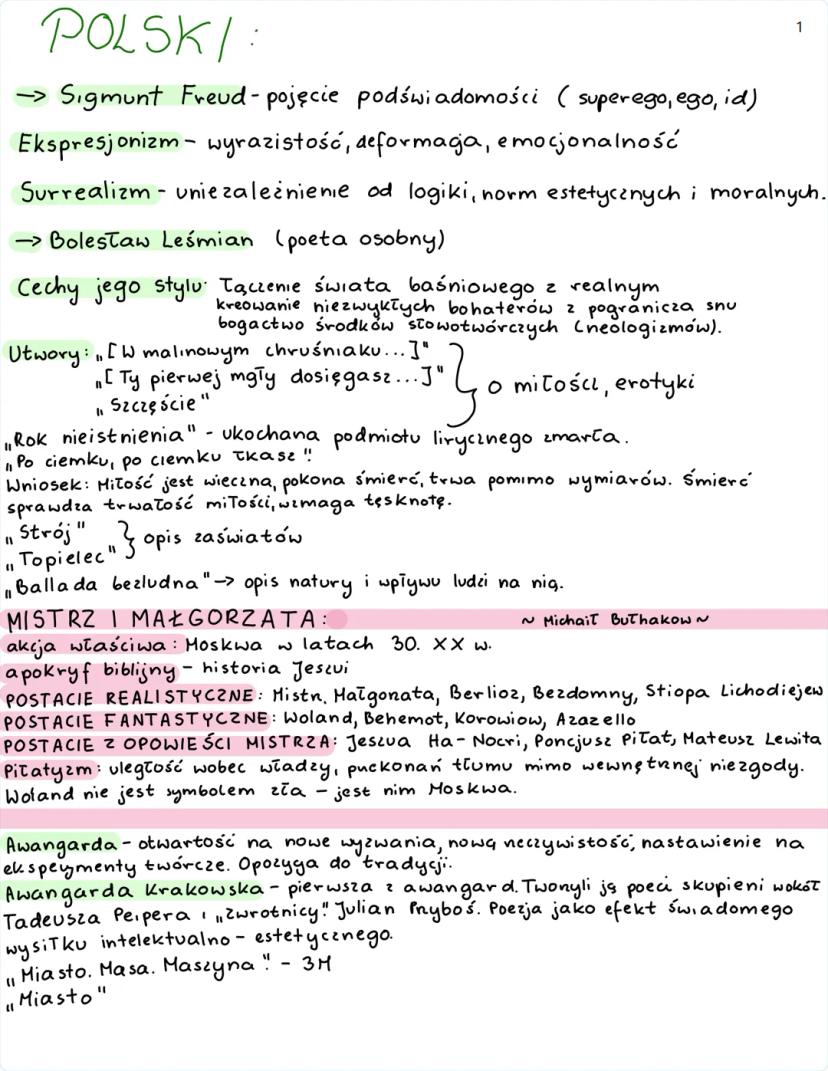 POLSKI:
1
→ Sigmunt Freud - pojęcie podświadomości (superego, ego, id)
Ekspresjonizm - wyrazistość, deformacja, emocjonalność
Surrealizm - uniezależnienie od logiki, norm estetycznych i moralnych.
→ Bolesław Leśmian (poeta osobny)
Cechy jego stylu: łączenie świata baśniowego z realnym
kreowanie niezwykłych bohaterów z pogranicza snu
bogactwo środków słowotwórczych (neologizmów).
Utwory: „[W malinowym chruśniaku...]"
„[Ty pierwej mgły dosięgasz...]"
„Szczęście"
} o miłości, erotyki
„Rok nieistnienia" - ukochana podmiotu lirycznego zmarła.
„Po ciemku, po ciemku łkasz".
Wniosek: Miłość jest wieczna, pokona śmierć, trwa pomimo wymiarów. Śmierć
sprawdza trwałość miłości, wzmaga tęsknotę.
„Strój"
„Topielec"
} opis zaświatów
„Ballada bezludna" → opis natury i wpływu ludzi na nią.
MISTRZ I MAŁGORZATA: ~ Michaił Bułhakow ~
akcja właściwa: Moskwa w latach 30. XX w.
apokryf biblijny - historia Jeszui
POSTACIE REALISTYCZNE: Mistrz, Małgorzata, Berlioz, Bezdomny, Stiopa Lichodiejew
POSTACIE FANTASTYCZNE: Woland, Behemot, Korowiow, Azazello
POSTACIE Z OPOWIEŚCI MISTRZA: Jeszua Ha-Nocri, Poncjusz Piłat, Mateusz Lewita
Piłatyzm: uległość wobec władzy, przekonań tłumu mimo wewnętrznej niezgody.
Woland nie jest symbolem zła - jest nim Moskwa.
Awangarda - otwartość na nowe wyzwania, nową rzeczywistość, nastawienie na
eksperymenty twórcze. Opozycja do tradycji.
Awangarda Krakowska - pierwsza z awangard. Tworzyli ją poeci skupieni wokół
Tadeusza Peipera i „Zwrotnicy". Julian Przyboś. Poezja jako efekt świadomego
wysiłku intelektualno - estetycznego.
„Miasto. Masa. Maszyna". - 3M
„Miasto"